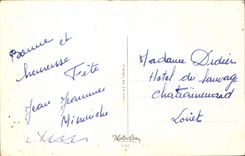 Bonne et
heureuse
Fête
Jean Jeannine
Minouche
Madame Didier
Hotel du Sauvage
Loiret